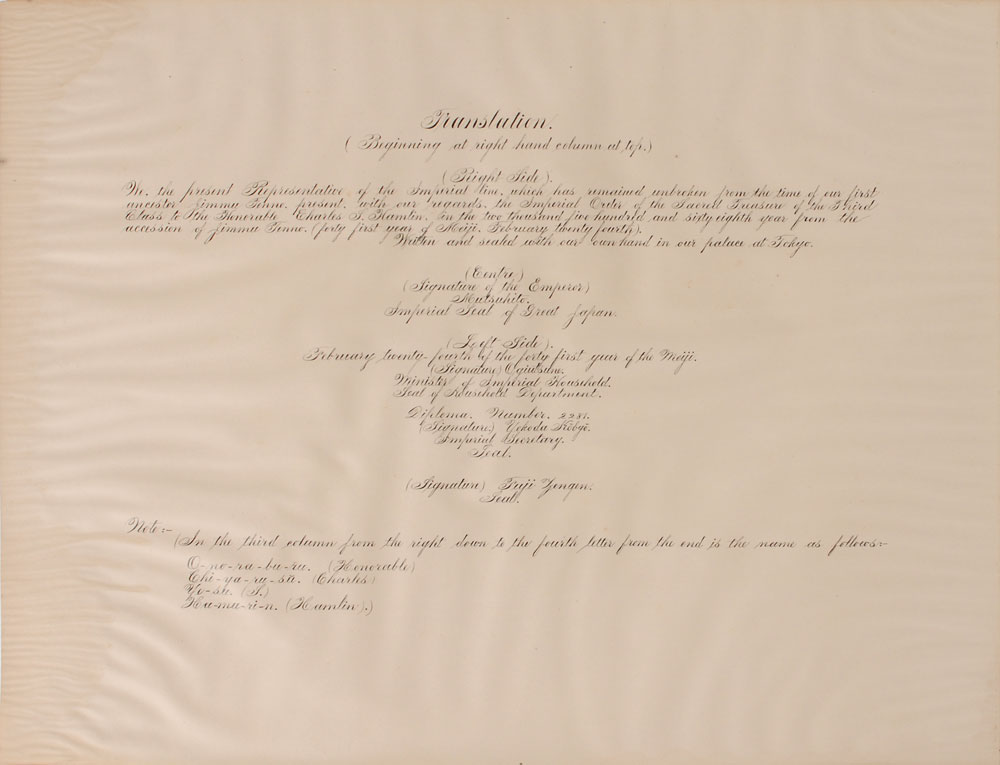 Translation.
(Beginning at right hand column at top.)
(Right Side).
We, the present Representative of the Imperial line, which has remained unbroken from the time of our first
ancestor Jimmu Tenno, present, with our regards, the Imperial Order of the Sacred Treasure of the Third
Class to the Honorable Charles S. Hamlin. In the two thousand five hundred and sixty eighth year from the
accession of Jimmu Tenno. (forty first year of Meiji. February twenty fourth).
Written and sealed with our own hand in our palace at Tokyo.
(Centre)
(Signature of the Emperor)
Mutsuhito.
Imperial Seal of Great Japan.
(Left Side).
February twenty-fourth of the forty first year of the Meiji.
(Signature)
Minister of Imperial Household.
Seal of Household Department.
Diploma. Number.
(Signature) Yokoda
Imperial Secretary.
Seal.
(Signature) Fuji Zengen.
Seal.
Note:-
(In the third column from the right down to the fourth letter from the end is the name as follows:-
O-no-ra-bu-ru. (Honorable)
Chi-ya-ru-su. (Charles)
Ye-su. (S.)
Ha-mu-ri-n. (Hamlin).)